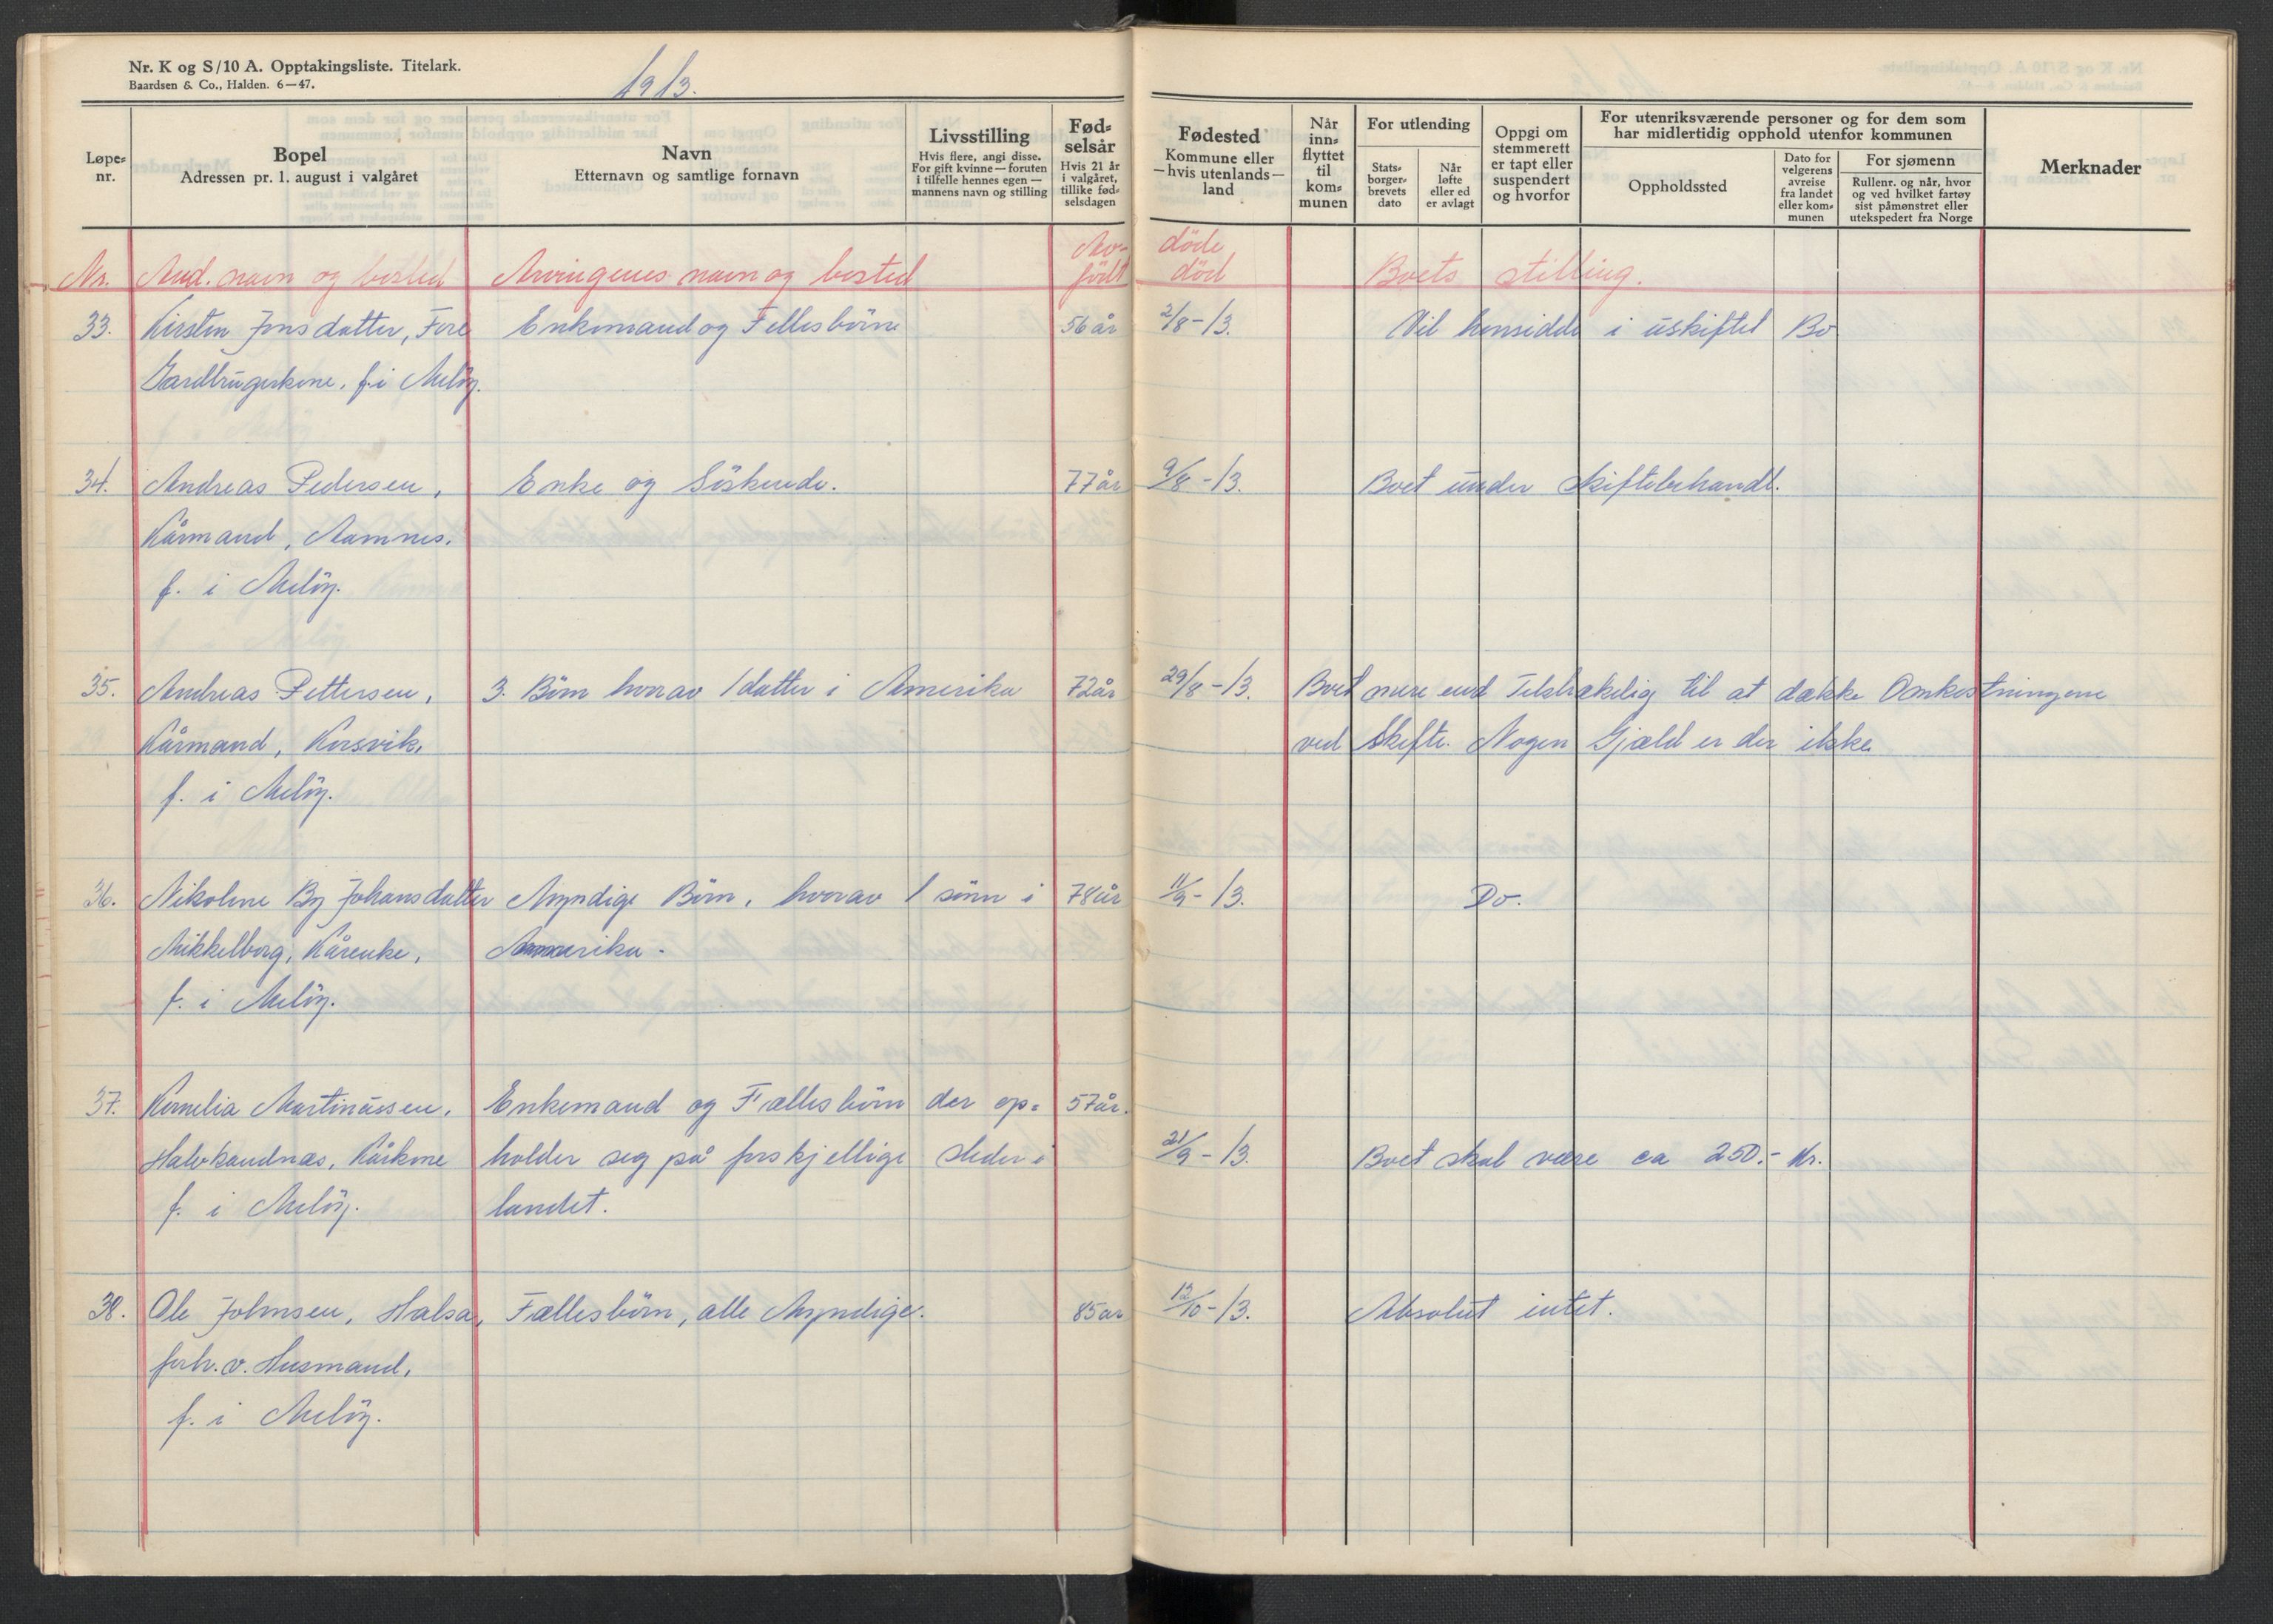 Nr. K og S/10 A. Opptakingsliste. Titelark.
Baardsen & Co., Halden. 6—47.
1913.
Løpe-
nr.
Bopel
Adressen pr. 1. august i valgåret
Navn
Etternavn og samtlige fornavn
Livsstilling
Hvis flere, angi disse.
For gift kvinne — foruten
i tilfelle hennes egen —
mannens navn og stilling
Fød-
selsår
Hvis 21 år
i valgåret,
tillike fød-
selsdagen
Fødested
Kommune eller
— hvis utenlands —
land
Når
inn-
flyttet
til
kom-
munen
For utlending
Stats-
borger-
brevets
dato
Når
løfte
eller ed
er avlagt
Oppgi om
stemmerett
er tapt eller
suspendert
og hvorfor
For utenriksværende personer og for dem som
har midlertidig opphold utenfor kommunen
Oppholdssted
Dato for
velgerens
avreise
fra landet
eller kom-
munen
For sjømenn
Rullenr. og når, hvor
og ved hvilket fartøy
sist påmønstret eller
utekspedert fra Norge
Merknader
Av- døde
Nr. Avd. navn og bosted Arvingenes navn og bosted født død Boets stilling.
33. Kirsten Jensdatter, Fore Enkemand og Fellesbörn 56 år 2/8-13. Vil hensidde i uskiftet Bo
Gardbrugerkone, f. i Melöy.
34. Andreas Pedersen, Enke og Söskende. 77 år 9/8-13. Boet under Skiftebehandl.
Kårmand, Aamnes.
f. i Melöy.
35. Andreas Pettersen, 3. Börn hvorav 1 datter i Amerika 72 år 29/8-13. Boet mere end Telstrækelig til at dække Omkostningene
Kårmand, Korsvik, ved Skifte. Nogen Gjæld er der ikke.
f. i Melöy.
36. Nikoline By Johansdatter Myndige Börn, hvorav 1 sönn i 78 år 11/9-13. Do.
Mikkelborg, Kårenke, Amerika.
f. i Melöy.
37. Kornelia Martinussen, Enkemand og Fællesbörn der op= 57 år.
Halvkandnæs, Kårkone holder seg på forskjellige steder i 21/9-13. Boet skal være ca 250.- Kr.
f. i Melöy. landet.
38. Ole Johnsen, Halsa, Fællesbörn, alle Myndige. 85 år 12/10-13. Absolut intet.
forh.v. Husmand,
f. i Melöy.